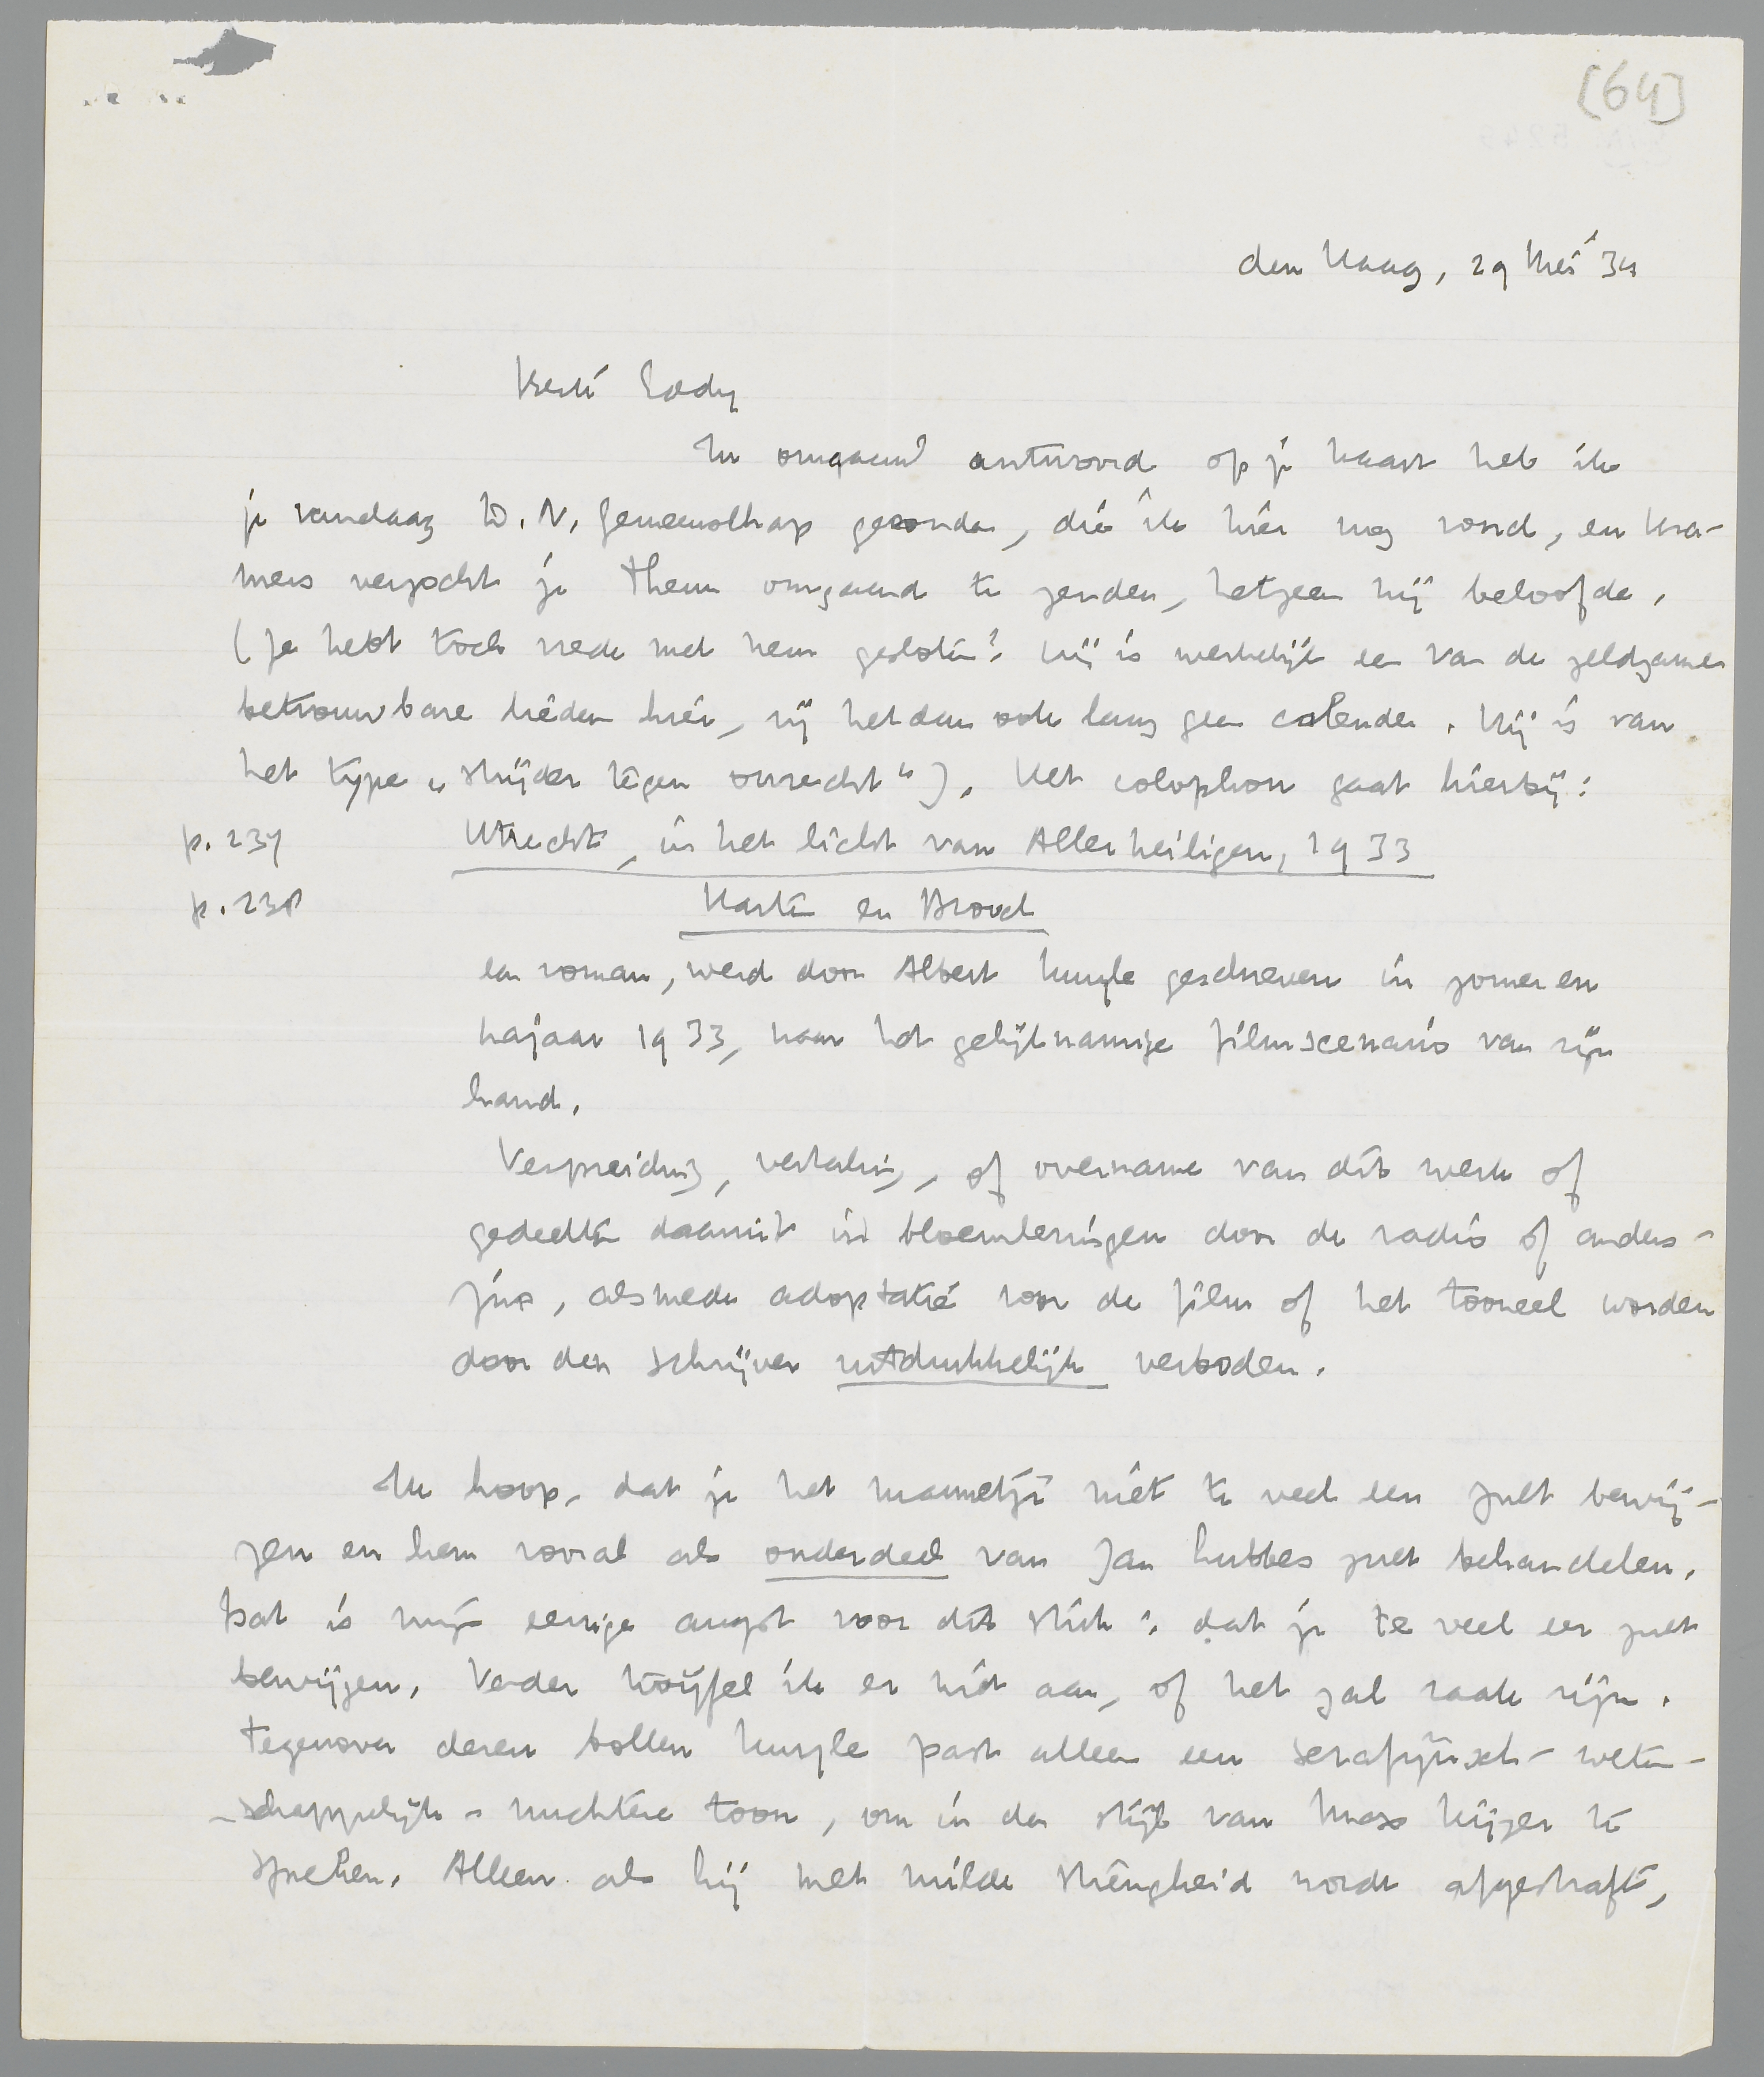 [64]
den Haag, 29 Mei '34
Beste Eddy
In omgaand antwoord op je kaart heb ik
je vandaag D. N. Gemeenschap gezonden, die ik hier nog vond, en Kra-
mers verzocht je Thema omgaand te zenden, hetgeen hij beloofde.
(Je hebt toch vrede met hem gesloten? Hij is werkelijk een van de zeldzame
betrouwbare lieden hier, zij het dan ook lang geen coloender. Hij is van
het type „strijder tegen onrecht"). Het colophon gaat hierbij:
p. 237 Utrecht, in het licht van Allerheiligen, 1933
p. 238 Harten en Brood
een roman, werd door Albert Kuyle geschreven in zomer en
najaar 1933, naar het gelijknamige filmscenario van zijn
hand.
Verspreiding, vertaling, of overname van dit werk of
gedeelten daaruit in bloemlezingen door de radio of anders-
zins, alsmede adoptatie voor de film of het tooneel worden
door den schrijver uitdrukkelijk verboden.
Ik hoop, dat je het mannetje niet te veel eer zult bewij-
zen en hem vooral als onderdeel van Jan Lubbes zult behandelen.
Dat is mijn eenige angst voor dit stuk: dat je te veel eer zult
bewijzen. Verder twijfel ik er niet aan, of het zal raak zijn.
Tegenover dezen bollen Kuyle past alleen een serafijnsch-weten-
-schappelijk-nuchtere toon, om in den stijl van Max Kijzer te
spreken. Alleen als hij met milde strengheid wordt afgestraft,